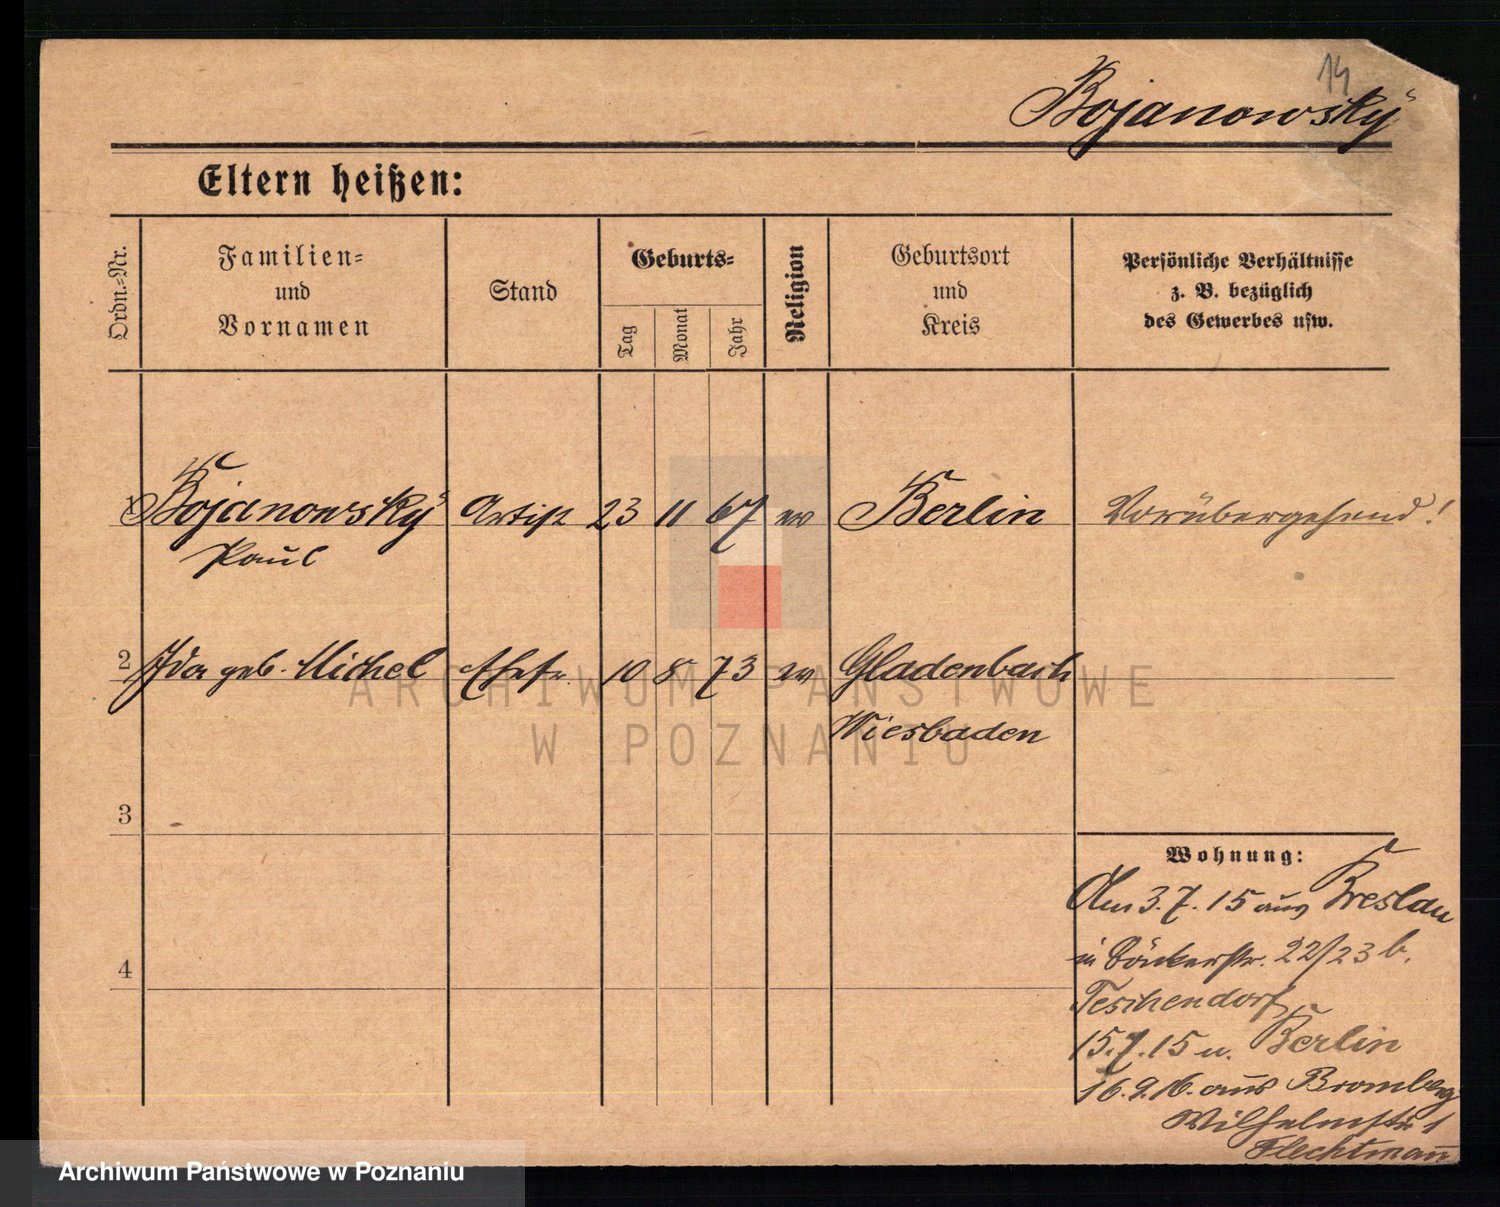 14
Bojanowsky
Eltern heißen:
Ordn.-Nr.
Familien-
und
Vornamen
Stand
Geburts-
Tag
Monat
Jahr
Religion
Geburtsort
und
Kreis
Persönliche Verhältnisse
z. B. bezüglich
des Gewerbes usw.
1 Bojanowsky Artist 23 11 67 ev Berlin Vorübergehend!
Paul
2 Ida geb. Michel Ehefr. 10 8 73 ev Gladenbach
Wiesbaden
3
4
Wohnung:
Am 3.7.15 aus Breslau
in 22/23 b.
Teschendorf
15.7.15 n. Berlin
16.9.16. aus Bromberg
Wilhelmstr 1
Flechtmann
ARCHIWUM PAŃSTWOWE
W POZNANIU
Archiwum Państwowe w Poznaniu